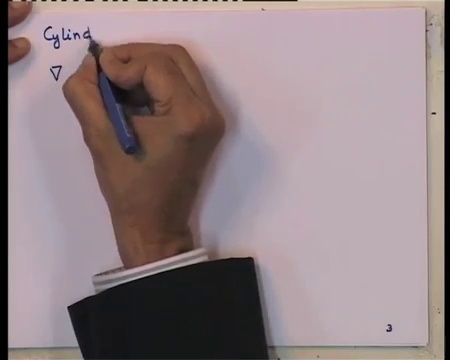 Cylind
∇
3